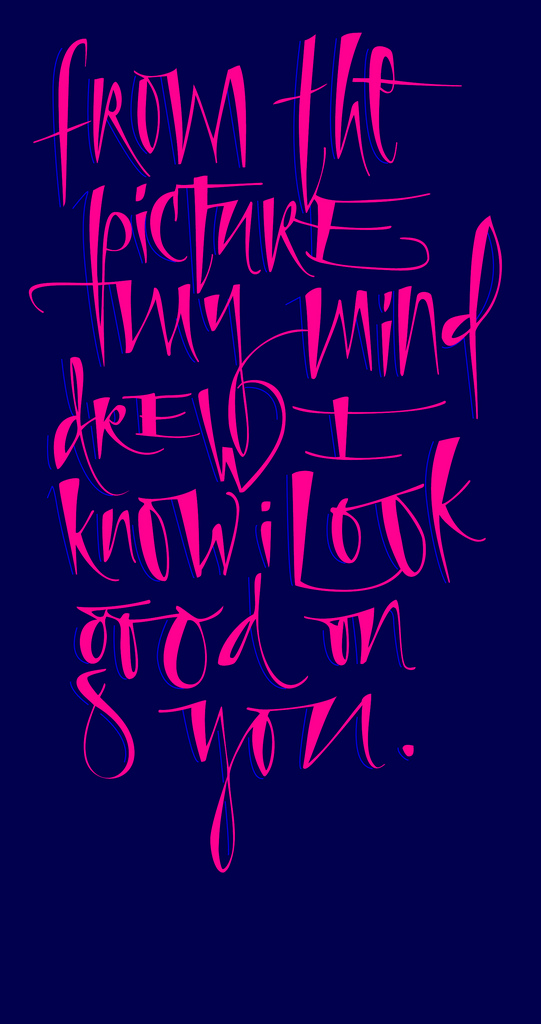 from the
picture
my mind
drew I
know i look
good on
you.